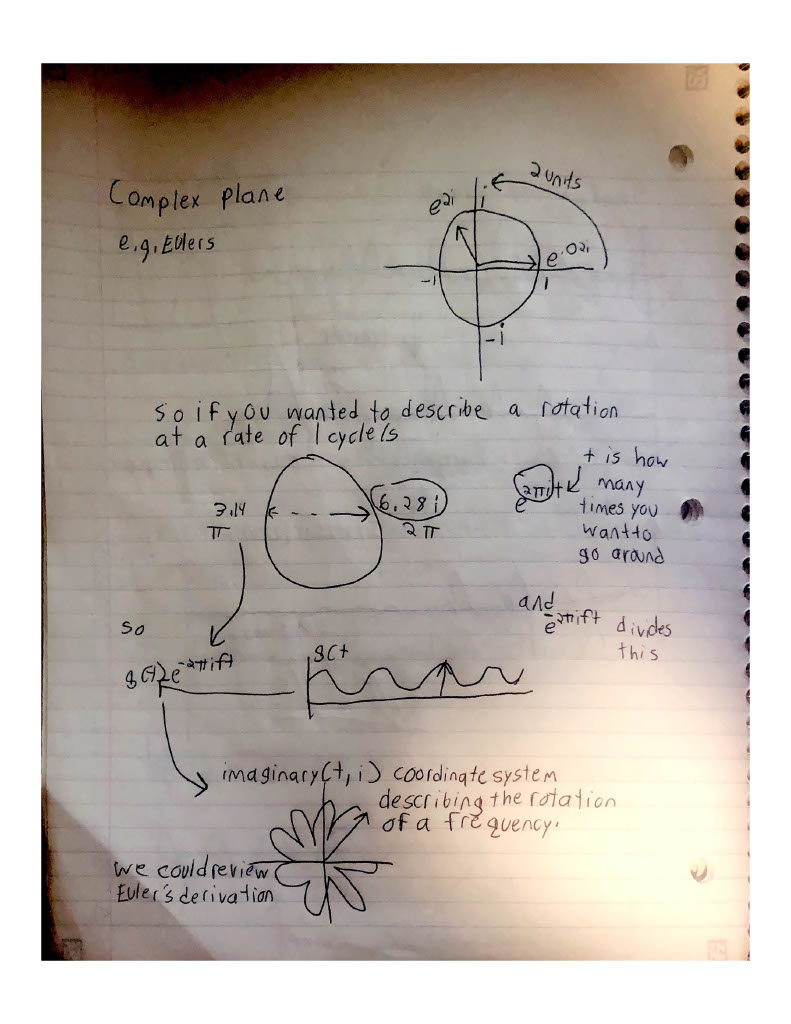 Complex plane
e.g. Eulers
2 units
i
e^2i
e^.02i
-1
1
-i
So if you wanted to describe a rotation
at a rate of 1 cycle/s
3.14
π
6.28i
2π
e^2πit
t is how
many
times you
want to
go around
and
e^-2πift divides
this
so
g(t)e^-2πift
g(t
imaginary(t,i) coordinate system
describing the rotation
of a frequency.
we could review
Euler's derivation